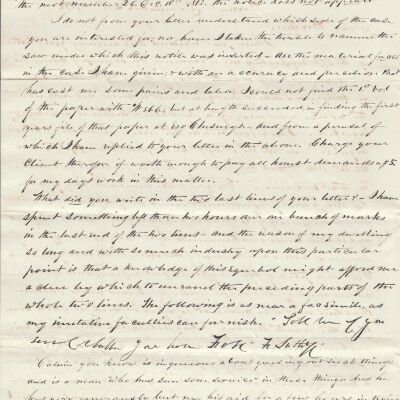 the next number 26. Oct. 18 the notice does not appear
I do not from your letter understand which side of the case
you are interested for, nor have I taken the trouble to examine the
law under which this notice was inserted. All the material facts
in the case I have given & with an accuracy and precision that
has cost me some pains and labor. I could not find the 1st vol
of the paper with Webb; but at length succeeded in finding the first
years file of that paper at Esq and from a perusal of
which I have replied to your letter in the above. Charge your
Client therefor if worth enough to pay all honest demands $5.
for my days work in this matter.
What did you write in the two last lines of your letter? I have
spent something less than two hours over a bunch of marks
in the last end of the two lines. And the reason of my dwelling
so long and with so much industry upon this particular
point is that a knowledge of this symbol might afford me
a clue by which to unravel the preceding parts of the
whole two lines. The following is as near a facsimile, as
my imitative faculties can furnish. "
you now
Calvin you know is ingenious about guessing out such things
and is a man who has seen some service in these things and he
has very generously lent me his aid for a few hours in trying